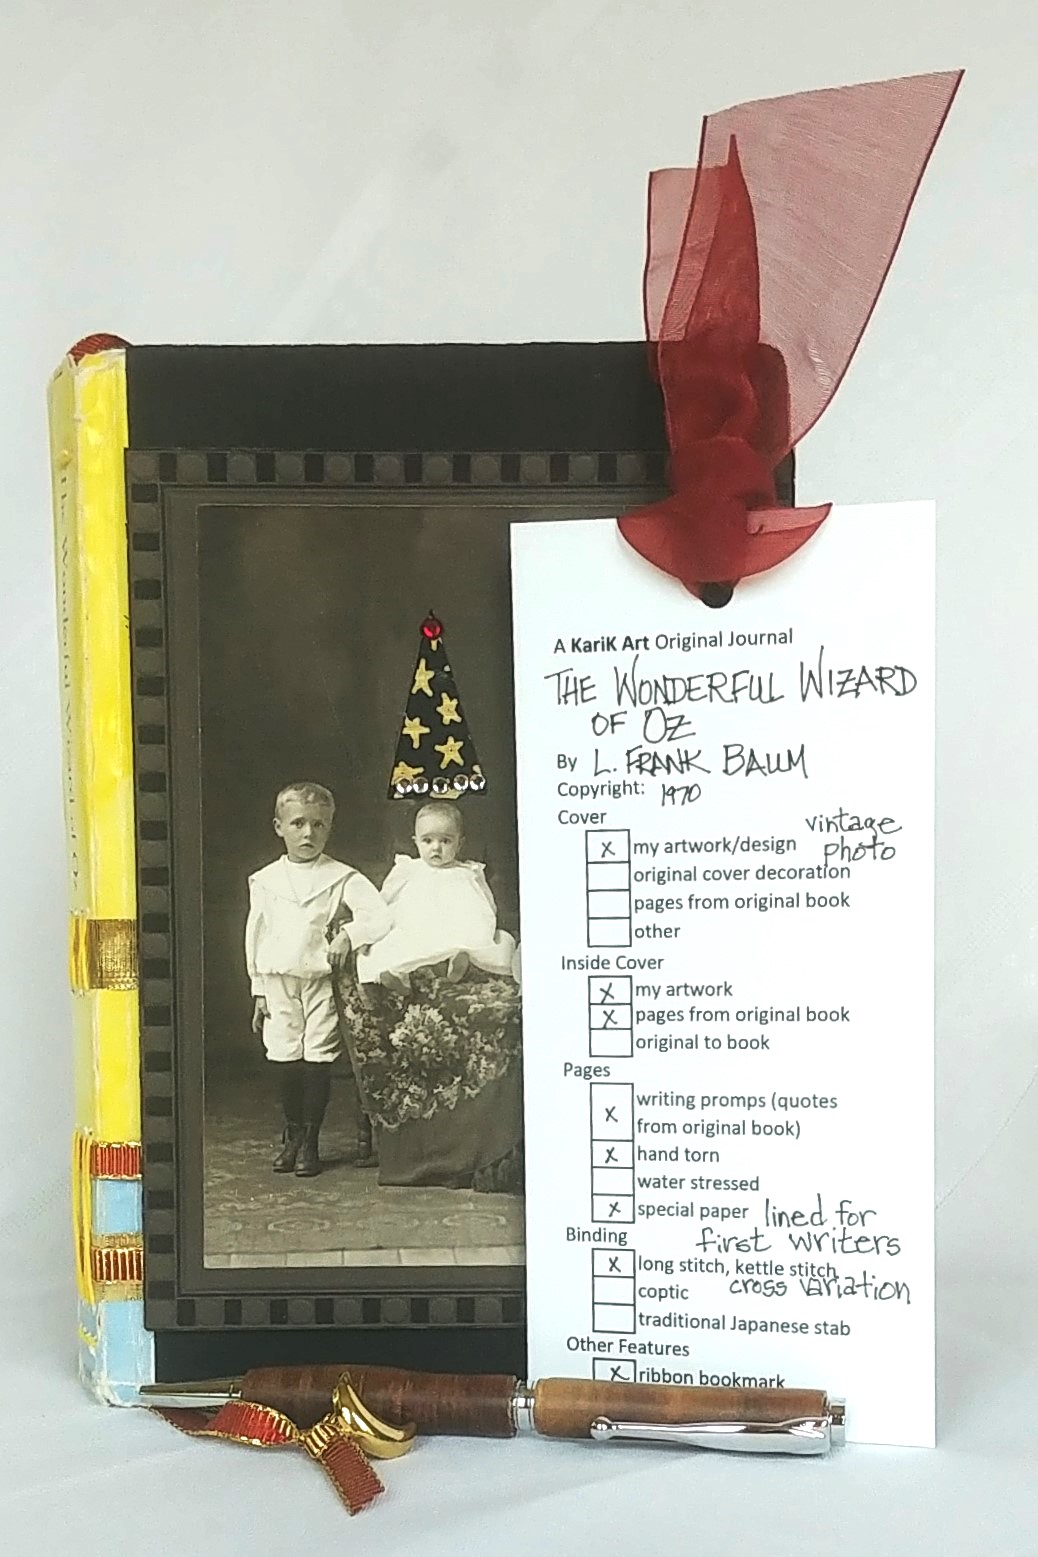 The Wonderful Wizard of Oz
A KariK Art Original Journal
THE WONDERFUL WIZARD
OF OZ
By L. FRANK BAUM
Copyright: 1970
Cover
x my artwork/design vintage photo
original cover decoration
pages from original book
other
Inside Cover
x my artwork
x pages from original book
original to book
Pages
x writing promps (quotes
from original book)
x hand torn
water stressed
x special paper lined for
first writers
Binding
x long stitch, kettle stitch
cross variation
coptic
traditional Japanese stab
Other Features
x ribbon bookmark